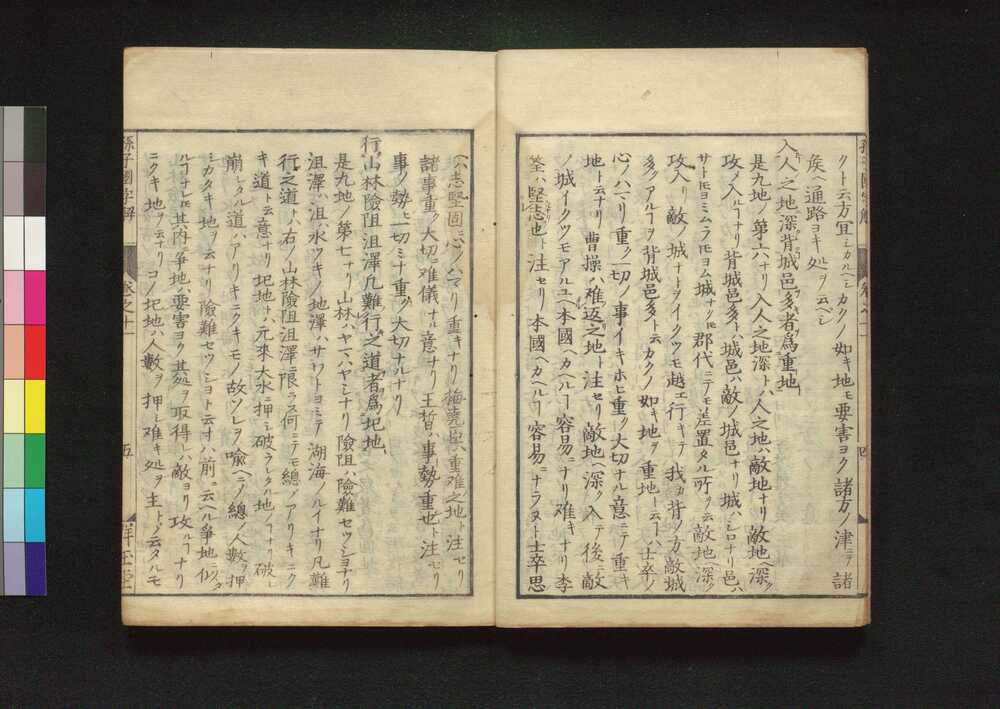 クト云方宜シカルヘシカクノ如キ地モ要害ヨク諸方ノ津ニテ諸
矦ヘ通路ヨキ処ヲ云ヘシ
入人之地深背城邑多者爲重地
是九地ノ第六ナリ入人之地深トハ人之地ハ敵地ナリ敵地ヘ深ク
攻メ入ルヿナリ背城邑多トハ城邑ハ敵ノ城邑ナリ城ハシロナリ邑ハ
サトヒヨミムラヒヨム城ナクヒ郡代ニテモ差置タル所ヲ云敵地深ク
攻入リ敵ノ城ナトヲイクツモ越エ行キテ我カ背ノ方敵城
多クアルヿヲ背城邑多ト云カクノ如キ地ヲ重地ト云ヿハ士卒ノ
心ノハマリ重ク一切ノ事イキホヒ重ク大切ナル意ニテ重キ
地ト云ナリ曹操ハ难返之地ト注セリ敵地ヘ深ク入テ後ニ敵
ノ城イクツモアルユヘ本國ヘカヘルヿ容易ニナリ难キナリ李
筌ハ堅志也ト注セリ本國ヘカヘルヿ容易ニナラヌト士卒思
ヘハ志堅固ニ心ノハマリ重キナリ梅堯臣ハ重难之地ト注セリ
諸事重ク大切ニ难儀ナル意ナリ王晢ハ事勢重也ト注セリ
事ノ勢ヒ一切ミナ重ク大切ナルナリ
行山林險阻沮澤凡難行之道者爲圮地
是九地ノ第七ナリ山林ハヤマハヤシナリ險阻ハ險難セツシヨナリ
沮澤ハ沮ハ水ツキノ地澤ハサワトヨミテ湖海ノルイナリ凡難
行之道トハ右ノ山林險阻沮澤ニ限ラス何ニテモ總シテアリキニク
キ道ト云意ナリ圮地トハ元來大水ニ押シ破ラレタル地ノヿナリ破レ
崩レタル道ハアリキニキモノ故ソレヲ喩ヘニシテ總シテ人數ヲ押
シカタキ地ヲ云ナリ險難セツシヨト云ナハ前ニ云ヘル爭地ニ似タ
ルヿナレヒ其内爭地ハ要害ヨク其処ヲ取得レハ敵ヨリ攻ルヿナリ
ニクキ地ヲ云ナリコノ圮地ハ人數ヲ押シ难キ処ヲ主トシテ云タルモ
孫子國字解
卷之十一
五
祥玉堂
四